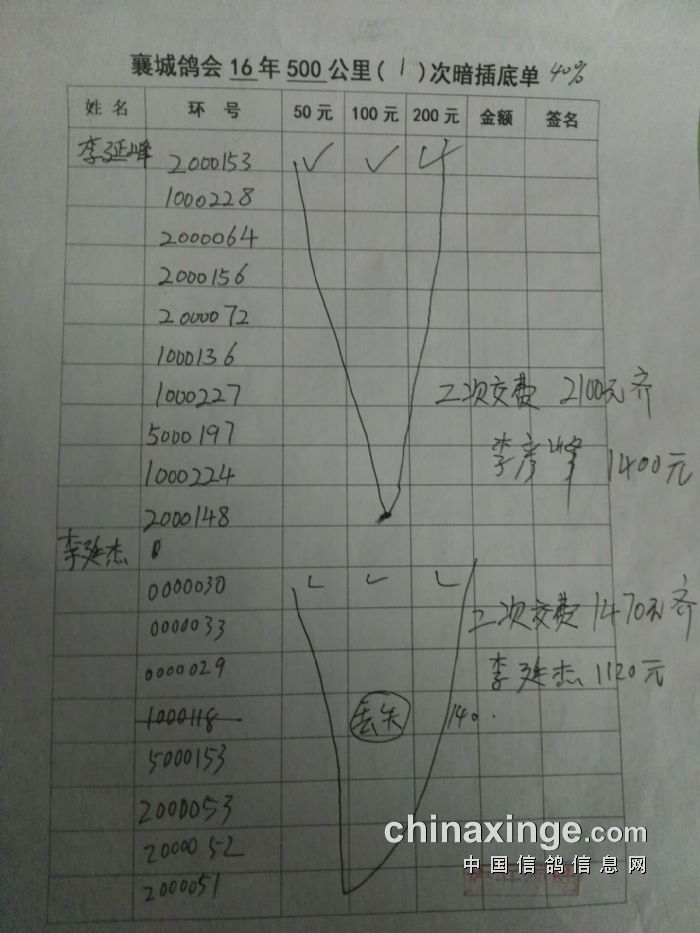 襄城鸽会16年500公里(1)次暗插底单 40%
姓名 环号 50元 100元 200元 金额 签名
李延峰 2000153 ✓ ✓ ✓
1000228
2000064
2000156
2000072
1000136
1000227 二次交费 2100元齐
5000197 李彦峰 1400元
1000224
2000148
李延杰
0000030 ✓ ✓ ✓
0000033 二次交费 1470元齐
0000029 李延杰 1120元
1000118 丢失 140.
5000153
2000053
2000052
2000051
chinaxinge.com
中国信鸽信息网